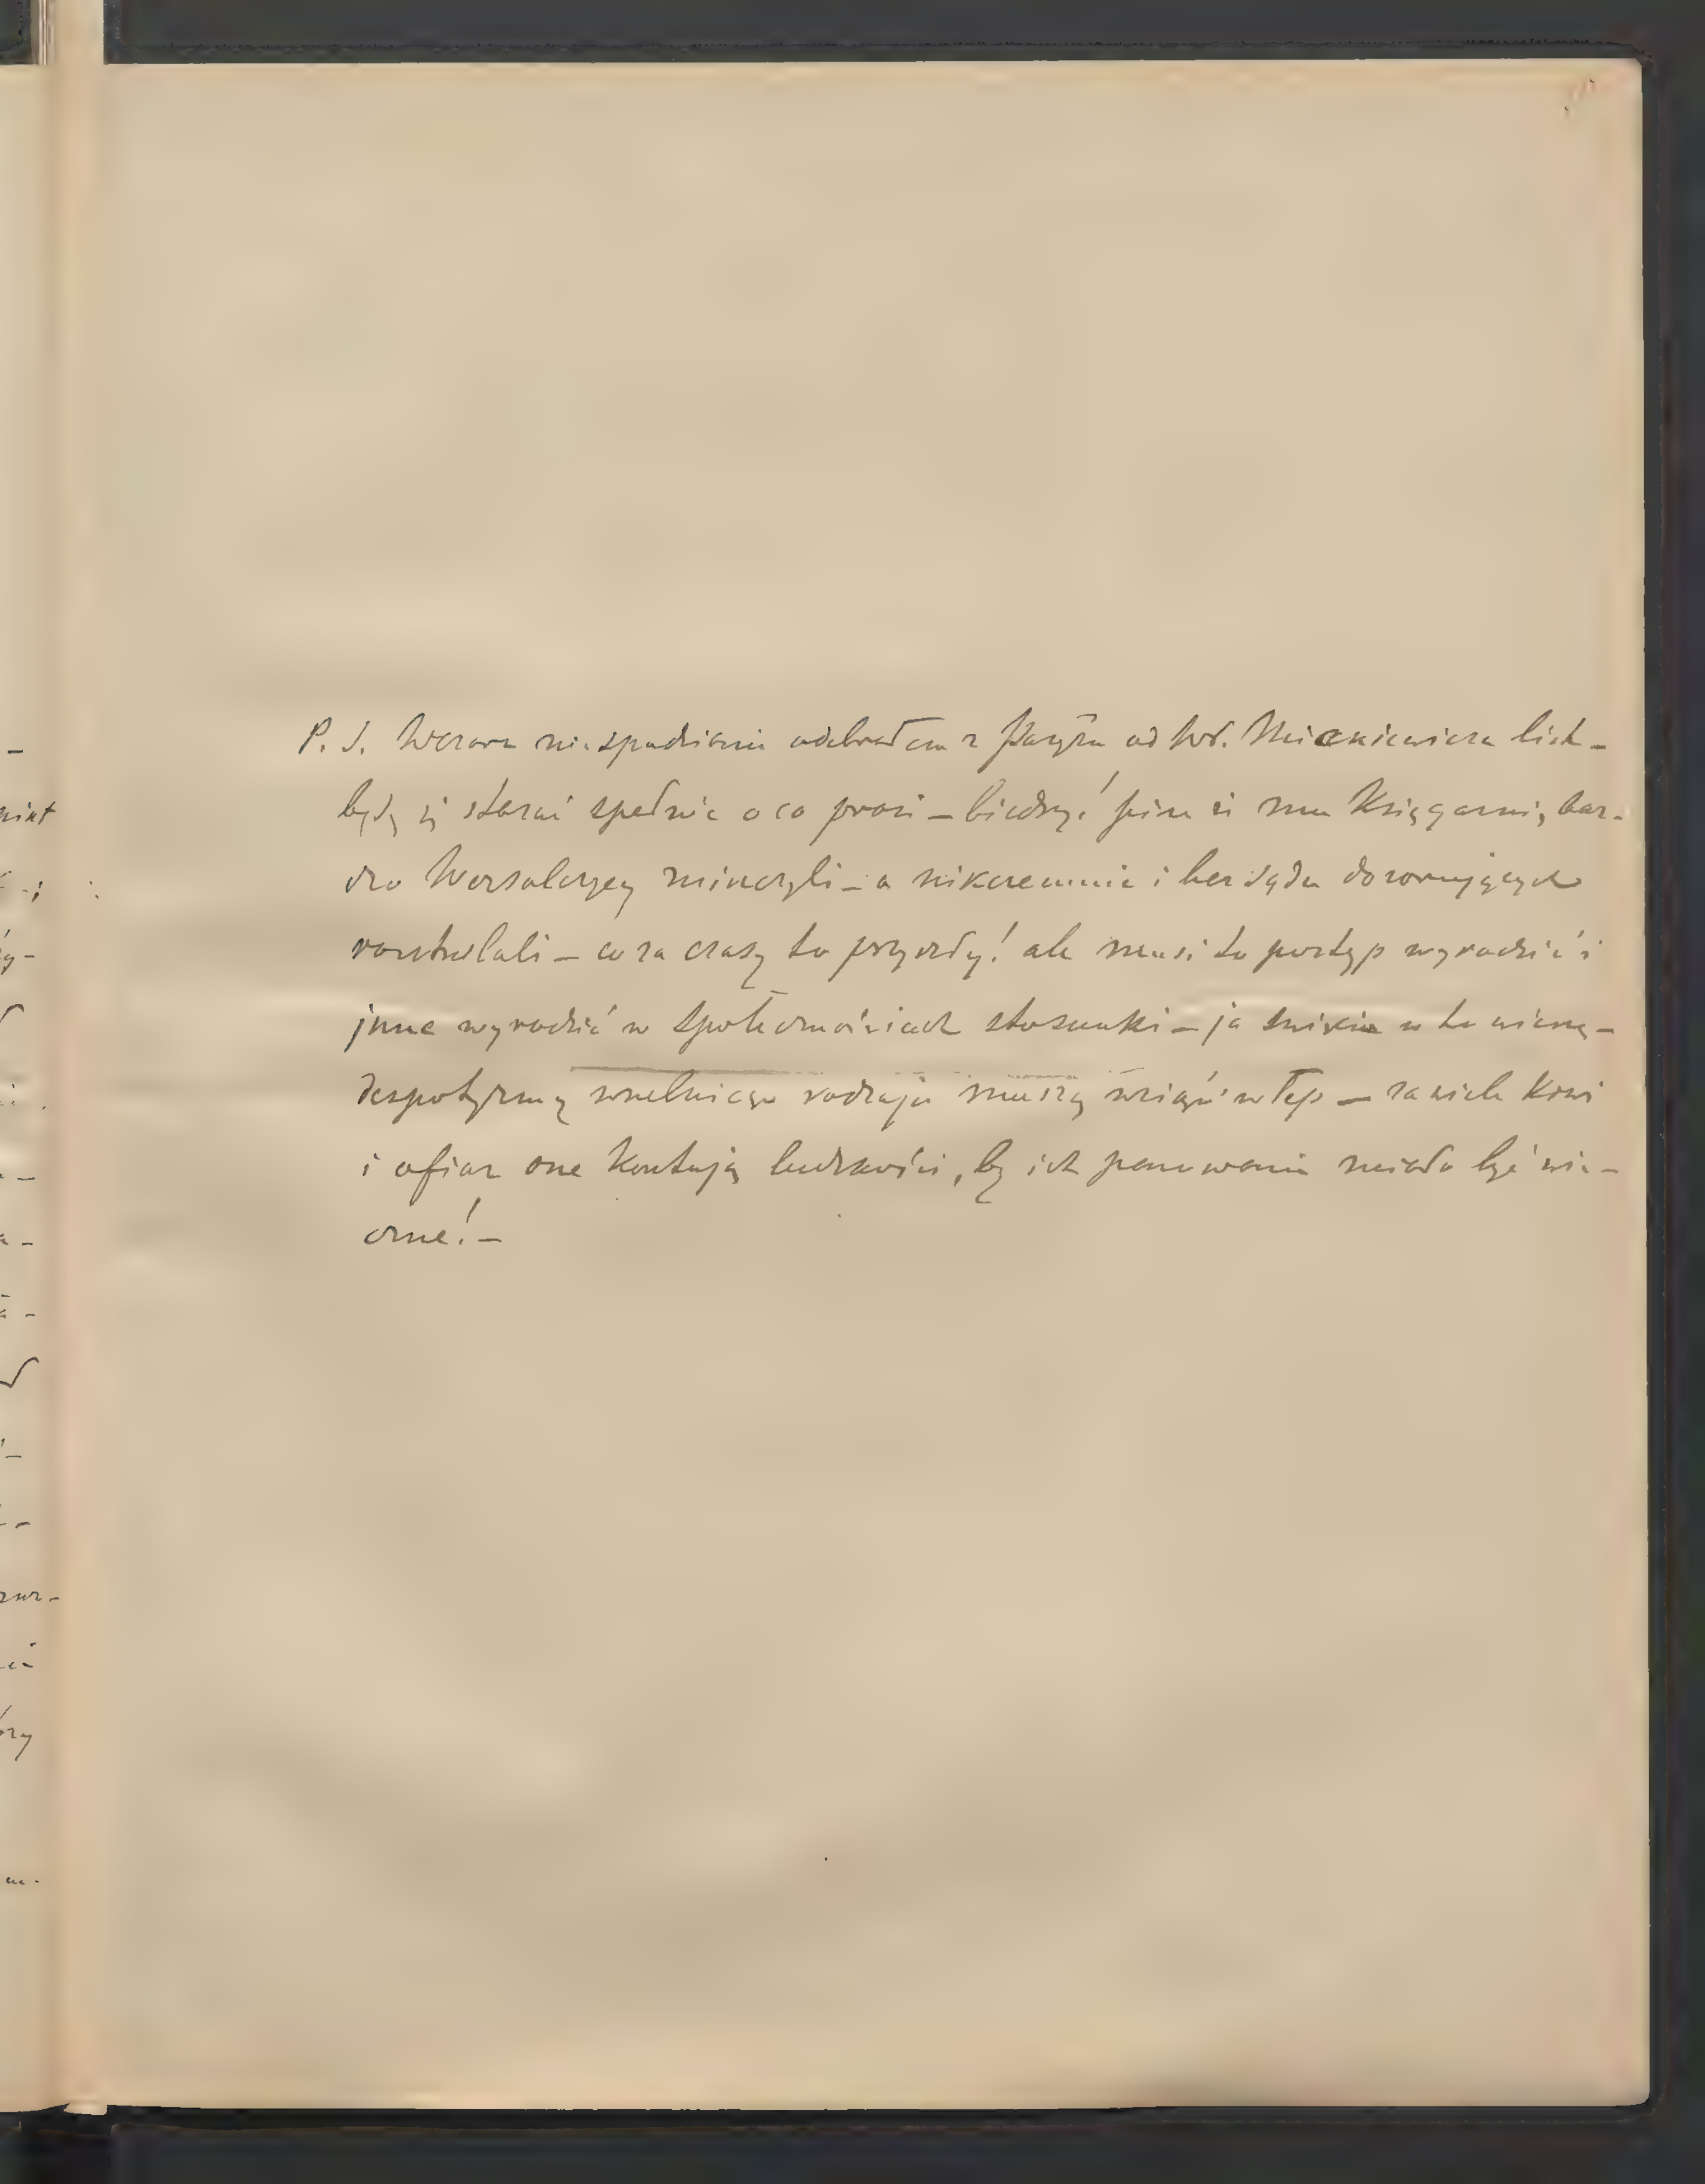 P. S. Wczora niespodzianie odebrałem z Paryża od Wł. Mickiewicza list –
będę się starać spełnić o co prosi – biedny! pisze iż mu Księgarnię bar-
dzo Wersalczycy zniszczyli – a nikczemnie i bez sądu dozorujących
rozstrzelali – co za czasy to przyszły! ale musi to postęp wyrodzić i
inne wyrodzić w społecznościach stosunki – ja święcie w to wierzę –
despotyzmy wszelkiego rodzaju muszą wziąść w łeb – za wiele krwi
i ofiar one kosztują ludzkości, by ich panowanie miało być wie-
czne! –